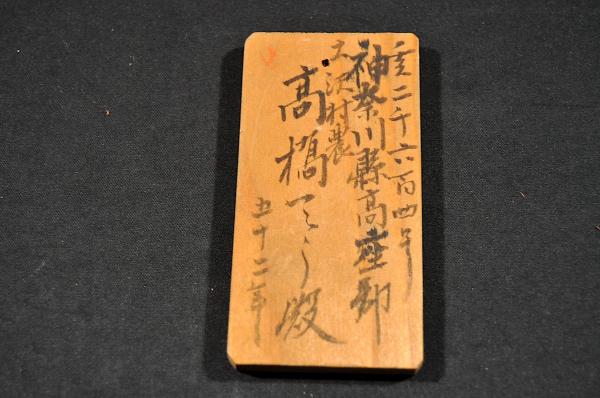 二千六百四号
神奈川縣高座郡
大沢村農
高橋てう殿
五十二年